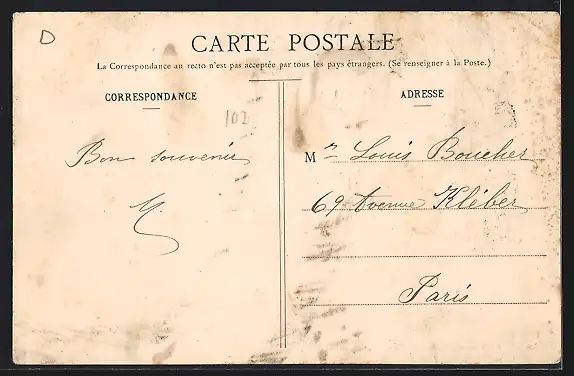 D
CARTE POSTALE
La Correspondance au recto n'est pas acceptée par tous les pays étrangers. (Se renseigner à la Poste.)
CORRESPONDANCE
102
Bon souvenir
ADRESSE
Mr Louis Boucher
69 Avenue Kléber
Paris